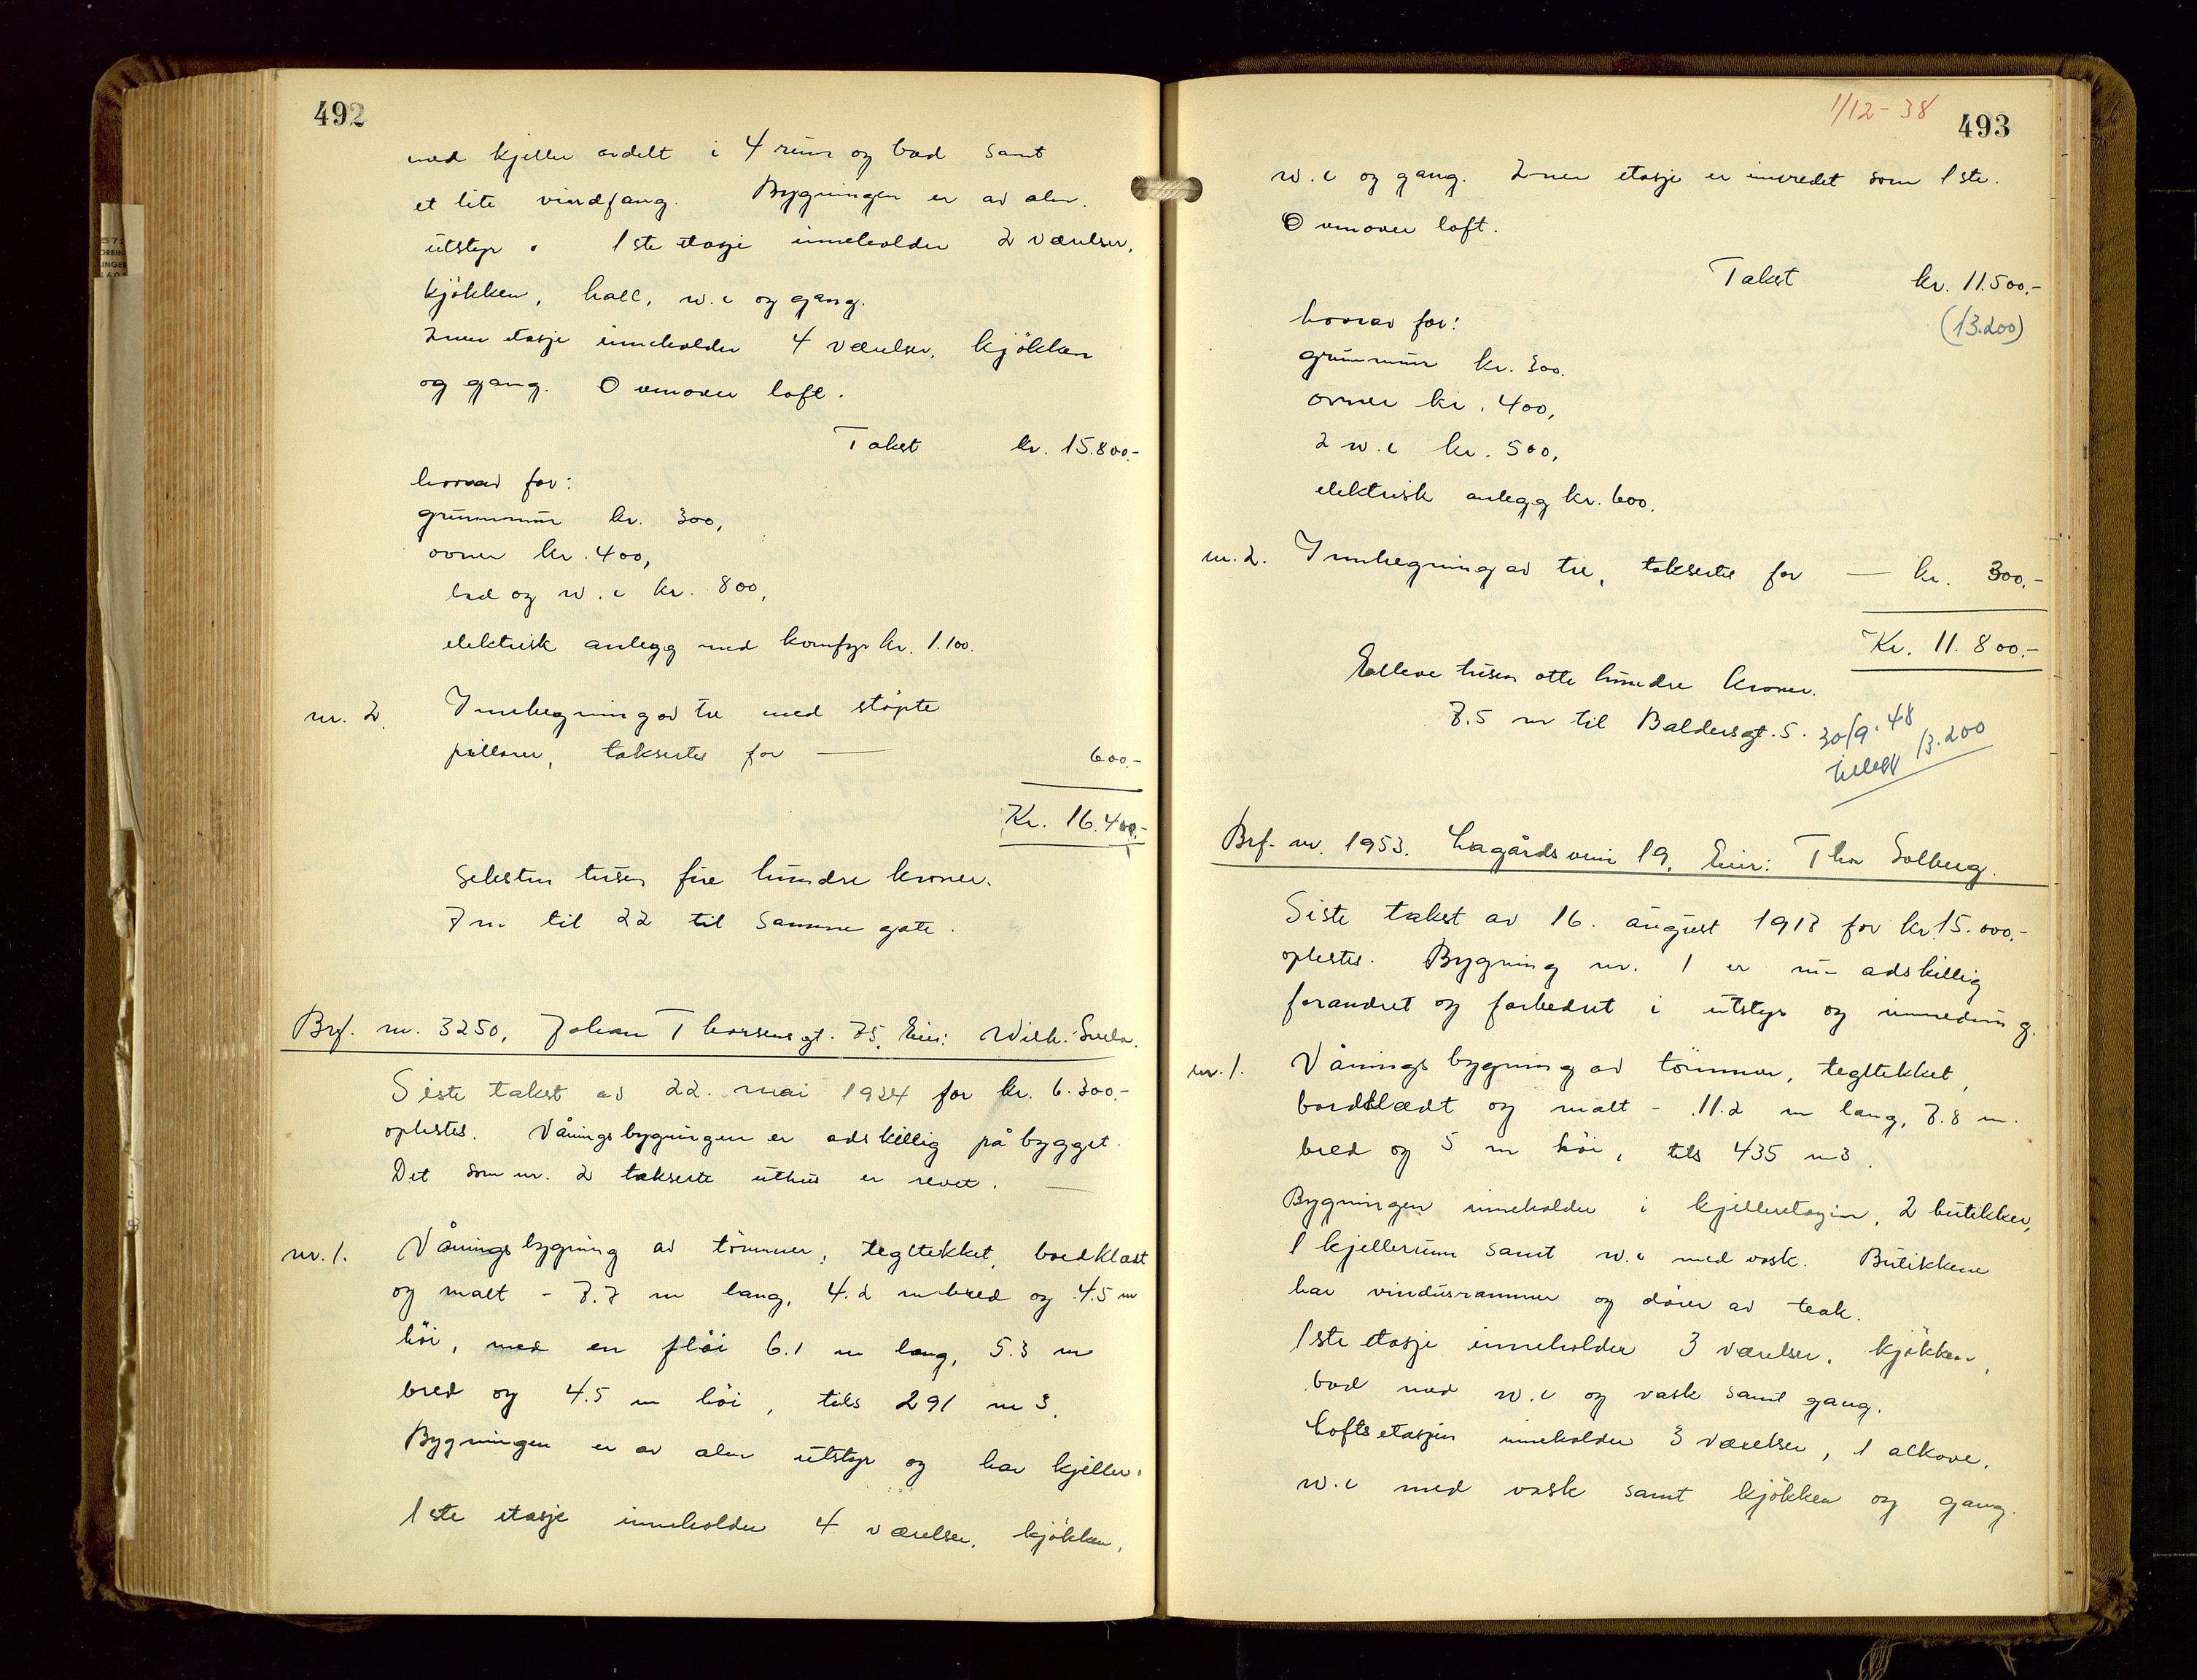 492
med kjeller avdelt i 4 rum og bad samt
et lite vindfang. Bygningen er av alm.
utstyr. 1ste etasje inneholder 2 værelser,
kjökken, hall, w.c og gang.
2nen etasje inneholder 4 værelser, kjökken
og gang. Ovenover loft.
Takst kr. 15.800.-
hvorav for:
grunnmur kr. 300,
ovner kr. 400,
bad og w.c kr. 800,
elektrisk anlegg med komfyr kr. 1.100.
nr. 2. Innhegning av tre med stöpte
pillarer, takseres for — 600.-
Kr. 16.400.-
Seksten tusen fire hundre kroner.
7 m til 22 til samme gate.
Brf. nr. 3250, Johan Thorsensgt. 75, Eier: Wilh.
Siste takst av 22. mai 1924 for kr. 6.300.-
oplestes. Våningsbygningen er adskillig påbygget.
Det som nr. 2 takserte uthus er revet. —
nr. 1. Våningsbygning av tömmer, tegltekket, bordklædt
og malt - 7.7 m lang, 4.2 m bred og 4.5 m
höi, med en flöi 6.1 m lang, 5.3 m
bred og 4.5 m höi, tils 291 m3.
Bygningen er av alm utstyr og har kjeller.
1ste etasje inneholder 4 værelser, kjökken,
1/12-38
493
w.c og gang. 2nen etasje er innredet som 1ste.
Ovenover loft.
Takst kr. 11.500.-
(13.200)
hvorav for:
grunnmur kr. 300.
ovner kr. 400,
2 w.c kr. 500,
elektrisk anlegg kr. 600.
nr. 2. Innhegning av tre, takseres for — kr. 300.-
Kr. 11.800.-
Elleve tusen otte hundre kroner.
7.5 m til Baldersgt. 5. 30/9.48
tillegg 13.200
Brf. nr. 1953. Lagårdsveien 19, Eier: Thv Solberg.
Siste takst av 16. august 1917 for kr. 15.000.-
oplestes. Bygning nr. 1 er nu adskillig
forandret og forbedret i utstyr og innredning.
nr. 1. Våningsbygning av tömmer, tegltekket,
bordklædt og malt - 11.2 m lang, 7.8 m.
bred og 5 m höi, tils 435 m3.
Bygningen inneholder i kjelleretasjen, 2 butikker,
1 kjellerrum samt w.c med vask. Butikkene
har vindusrammer og dörer av teak.
1ste etasje inneholder 3 værelser, kjökken,
bad med w.c og vask samt gang.
Loftsetasjen inneholder 3 værelser, 1 alkove,
w.c med vask samt kjökken og gang.